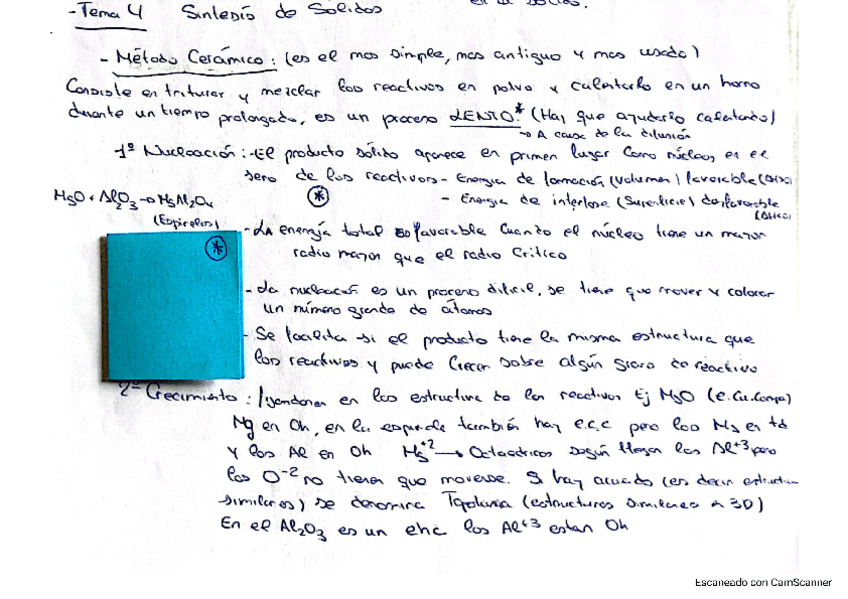 en la sólidos.
- Tema 4 Sintesis de Sólidos
- Método Cerámico: (es el mas simple, mas antiguo y mas usado)
Consiste en triturar y mezclar los reactivos en polvo y calentarlo en un horno
durante un tiempo prolongado, es un proceso LENTO.* (Hay que ayudarlo calentando)
→ A causa de la difusión
1º Nucleación: - El producto sólido aparece en primer lugar como núcleos en el
seno de los reactivos - Energia de formación (volumen) favorable
MgO + Al2O3 → MgAl2O4 * - Energia de interfase (superficie) desfavorable
(Espinelas)
* - La energía total es favorable cuando el núcleo tiene un mayor
radio mayor que el radio Critico
- La nucleación es un proceso dificil, se tiene que mover y colocar
un número grande de átomos
- Se facilita si el producto tiene la misma estructura que
los reactivos y puede Crecer sobre algún grano de reactivo
2º Crecimiento: fijandonos en las estructura de los reactivos Ej MgO (e.Cu.Comp)
Mg en Oh, en la espinela también hay e.c.c pero los Mg en td
y los Al en Oh Mg+2 → Octaedricos según llegan los Al+3 pero
los O-2 no tienen que moverse. Si hay acuerdo (es decir estructuras
similares) se denomina Topotaxia (estructuras similares en 3D)
En el Al2O3 es un ehc los Al+3 estan Oh
Escaneado con CamScanner